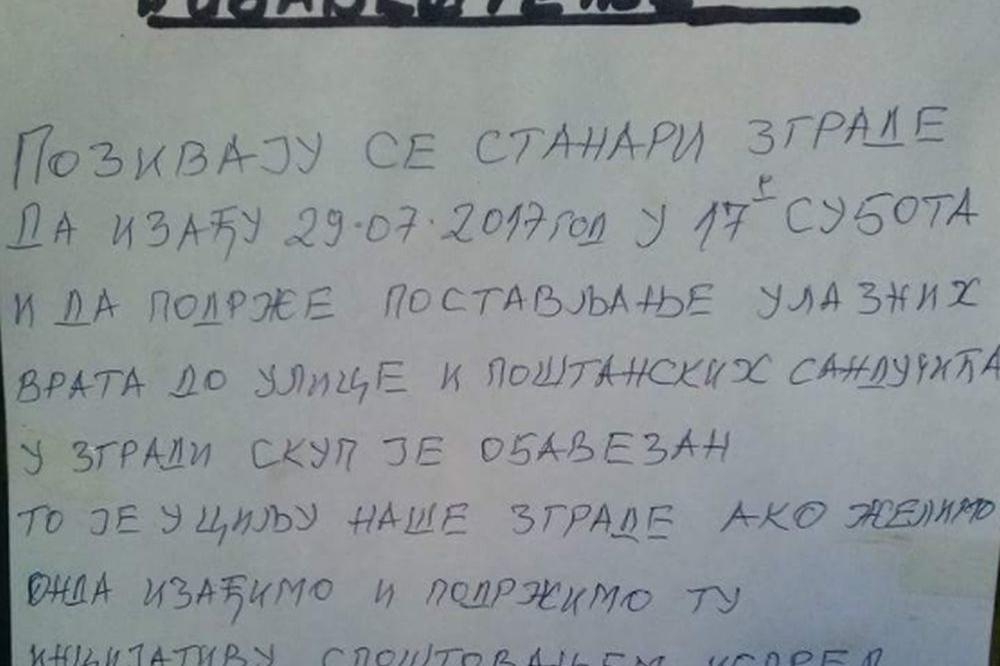 ПОЗИВАЈУ СЕ СТАНАРИ ЗГРАДЕ
ДА ИЗАЂУ 29.07.2017 год У 17 Р СУБОТА
И ДА ПОДРЖЕ ПОСТАВЉАЊЕ УЛАЗНИХ
ВРАТА ДО УЛИЦЕ И ПОШТАНСКИХ САНДУЧИЋА
У ЗГРАДИ СКУП ЈЕ ОБАВЕЗАН
ТО ЈЕ У ЦИЉУ НАШЕ ЗГРАДЕ АКО ЖЕЛИМО
ОНДА ИЗАЂИМО И ПОДРЖИМО ТУ
ИНИЦИЈАТИВУ СПОШТОВАЊЕМ ИСПРЕД